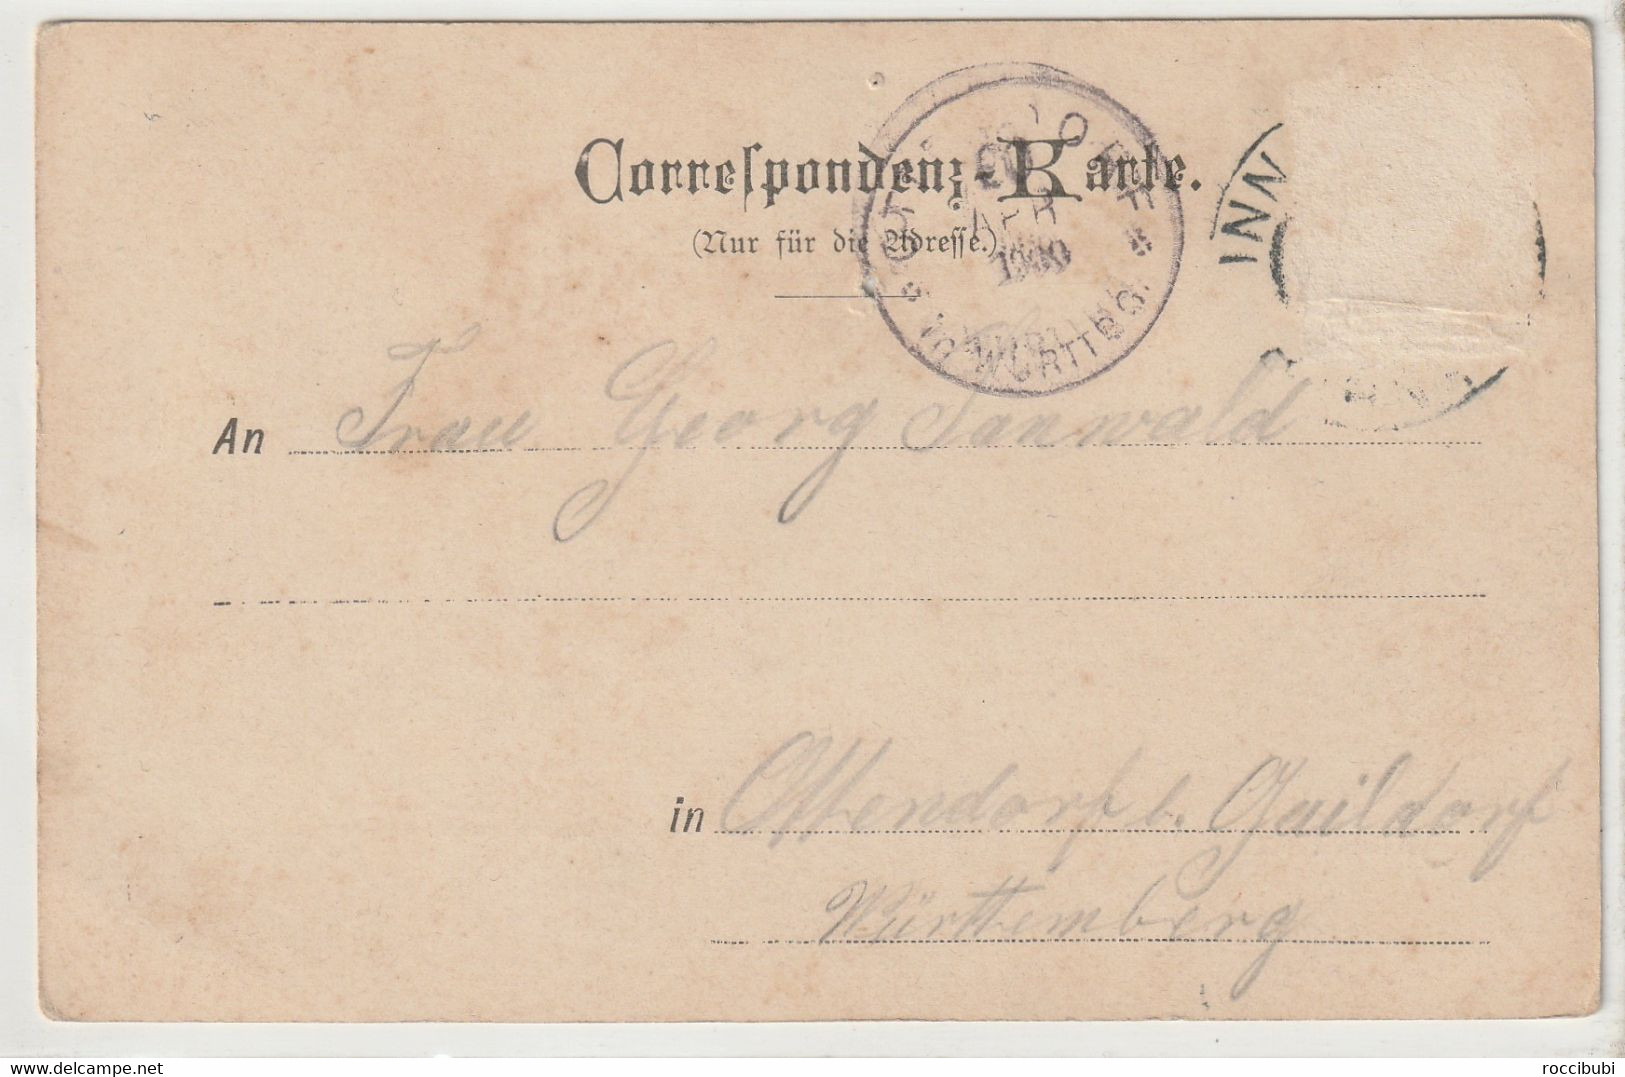 Correspondenz-Karte.
(Nur für die Adresse.)
INN
APR
1900
WÜRTTBG.
An Frau Georg Sanwald
in Ottendorf b. Gaildorf
Württemberg
roccibubi